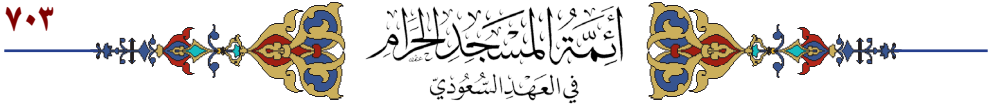 ٧٠٣
أَئِمَّةُ المَسْجِدِ الحَرَامِ
فِي العَهْدِ السُّعُودِيِّ